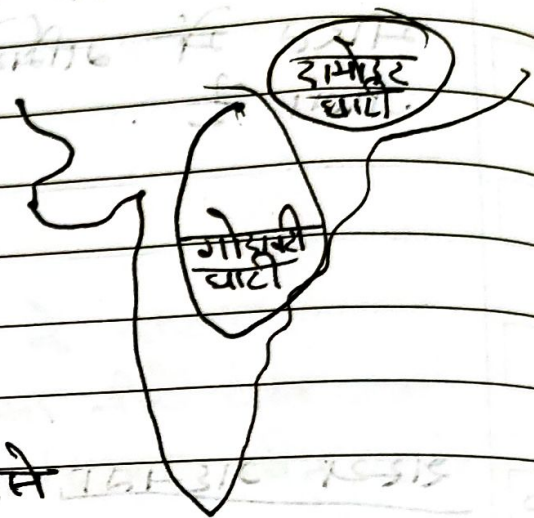 दामोदर
घाटी
गोदावरी
घाटी
से